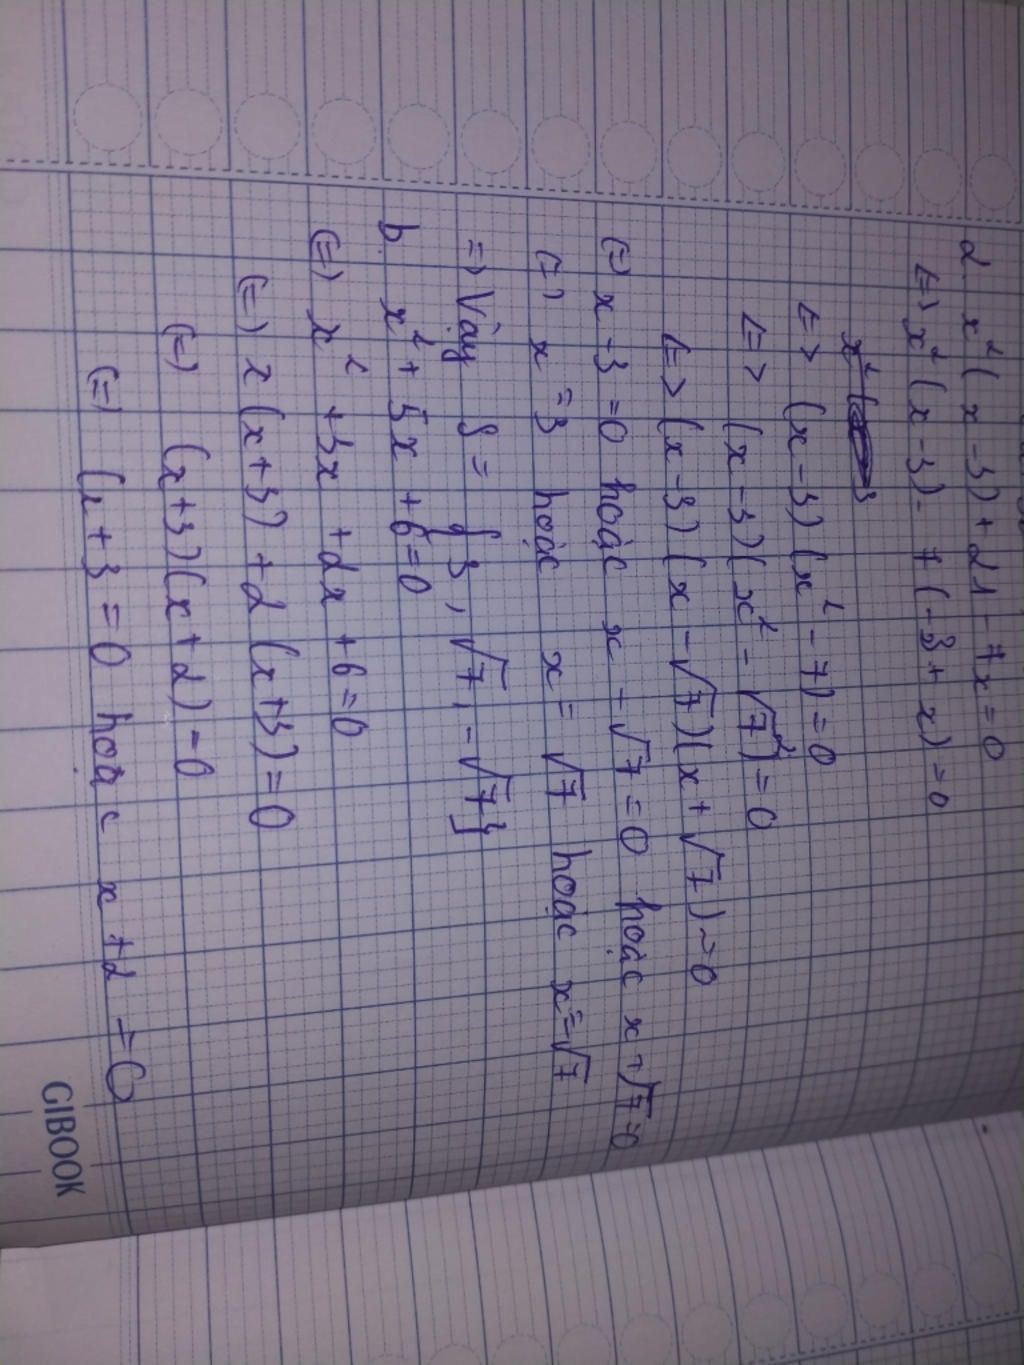 a x² ( x - 3) + 21 - 7x = 0
<=> x² ( x - 3) - 7 ( -3 + x) = 0
x² (
<=> (x - 3) (x² - 7) = 0
<=> (x - 3) ( x² - √7²) = 0
<=> (x - 3) ( x - √7 ) (x + √7 ) = 0
(=) x - 3 = 0 hoặc x - √7 = 0 hoặc x + √7 = 0
(=) x = 3 hoặc x = √7 hoặc x = -√7
=) Vậy S = { 3 , √7 , - √7 }
b. x² + 5x + 6 = 0
(=) x² + 3x + 2x + 6 = 0
(=) x (x + 3) + 2 (x + 3) = 0
(=) (x + 3) (x + 2) = 0
(=) (x + 3 = 0 hoặc x + 2 = 0
GIBOOK